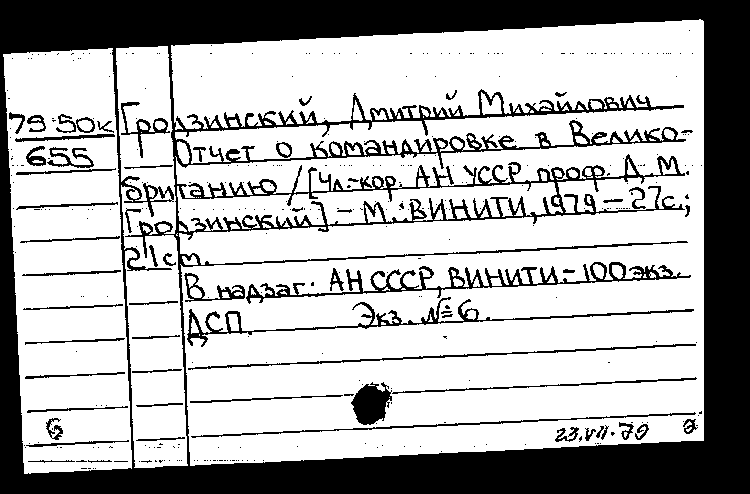 79-50к Гродзинский, Дмитрий Михайлович
655 Отчет о командировке в Велико-
британию / [Чл.-кор. АН УССР, проф. Д. М.
Гродзинский]. - М.: ВИНИТИ, 1979. - 27с.;
21 см.
В надзаг.: АН СССР, ВИНИТИ. - 100 экз.
ДСП. Экз. № 6.
6 23.VII.79